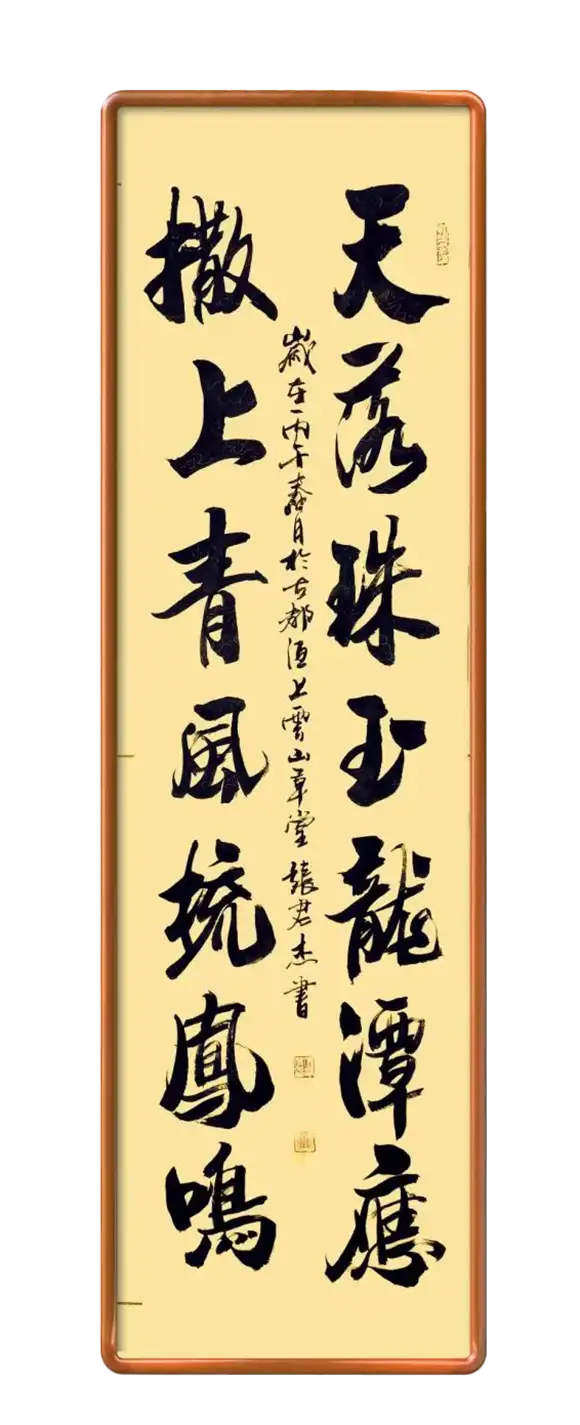 天落珠玉龍潭應
歲在丙午春月於古都洹上雲山草堂 張君杰書
撒上青風梳鳳鳴